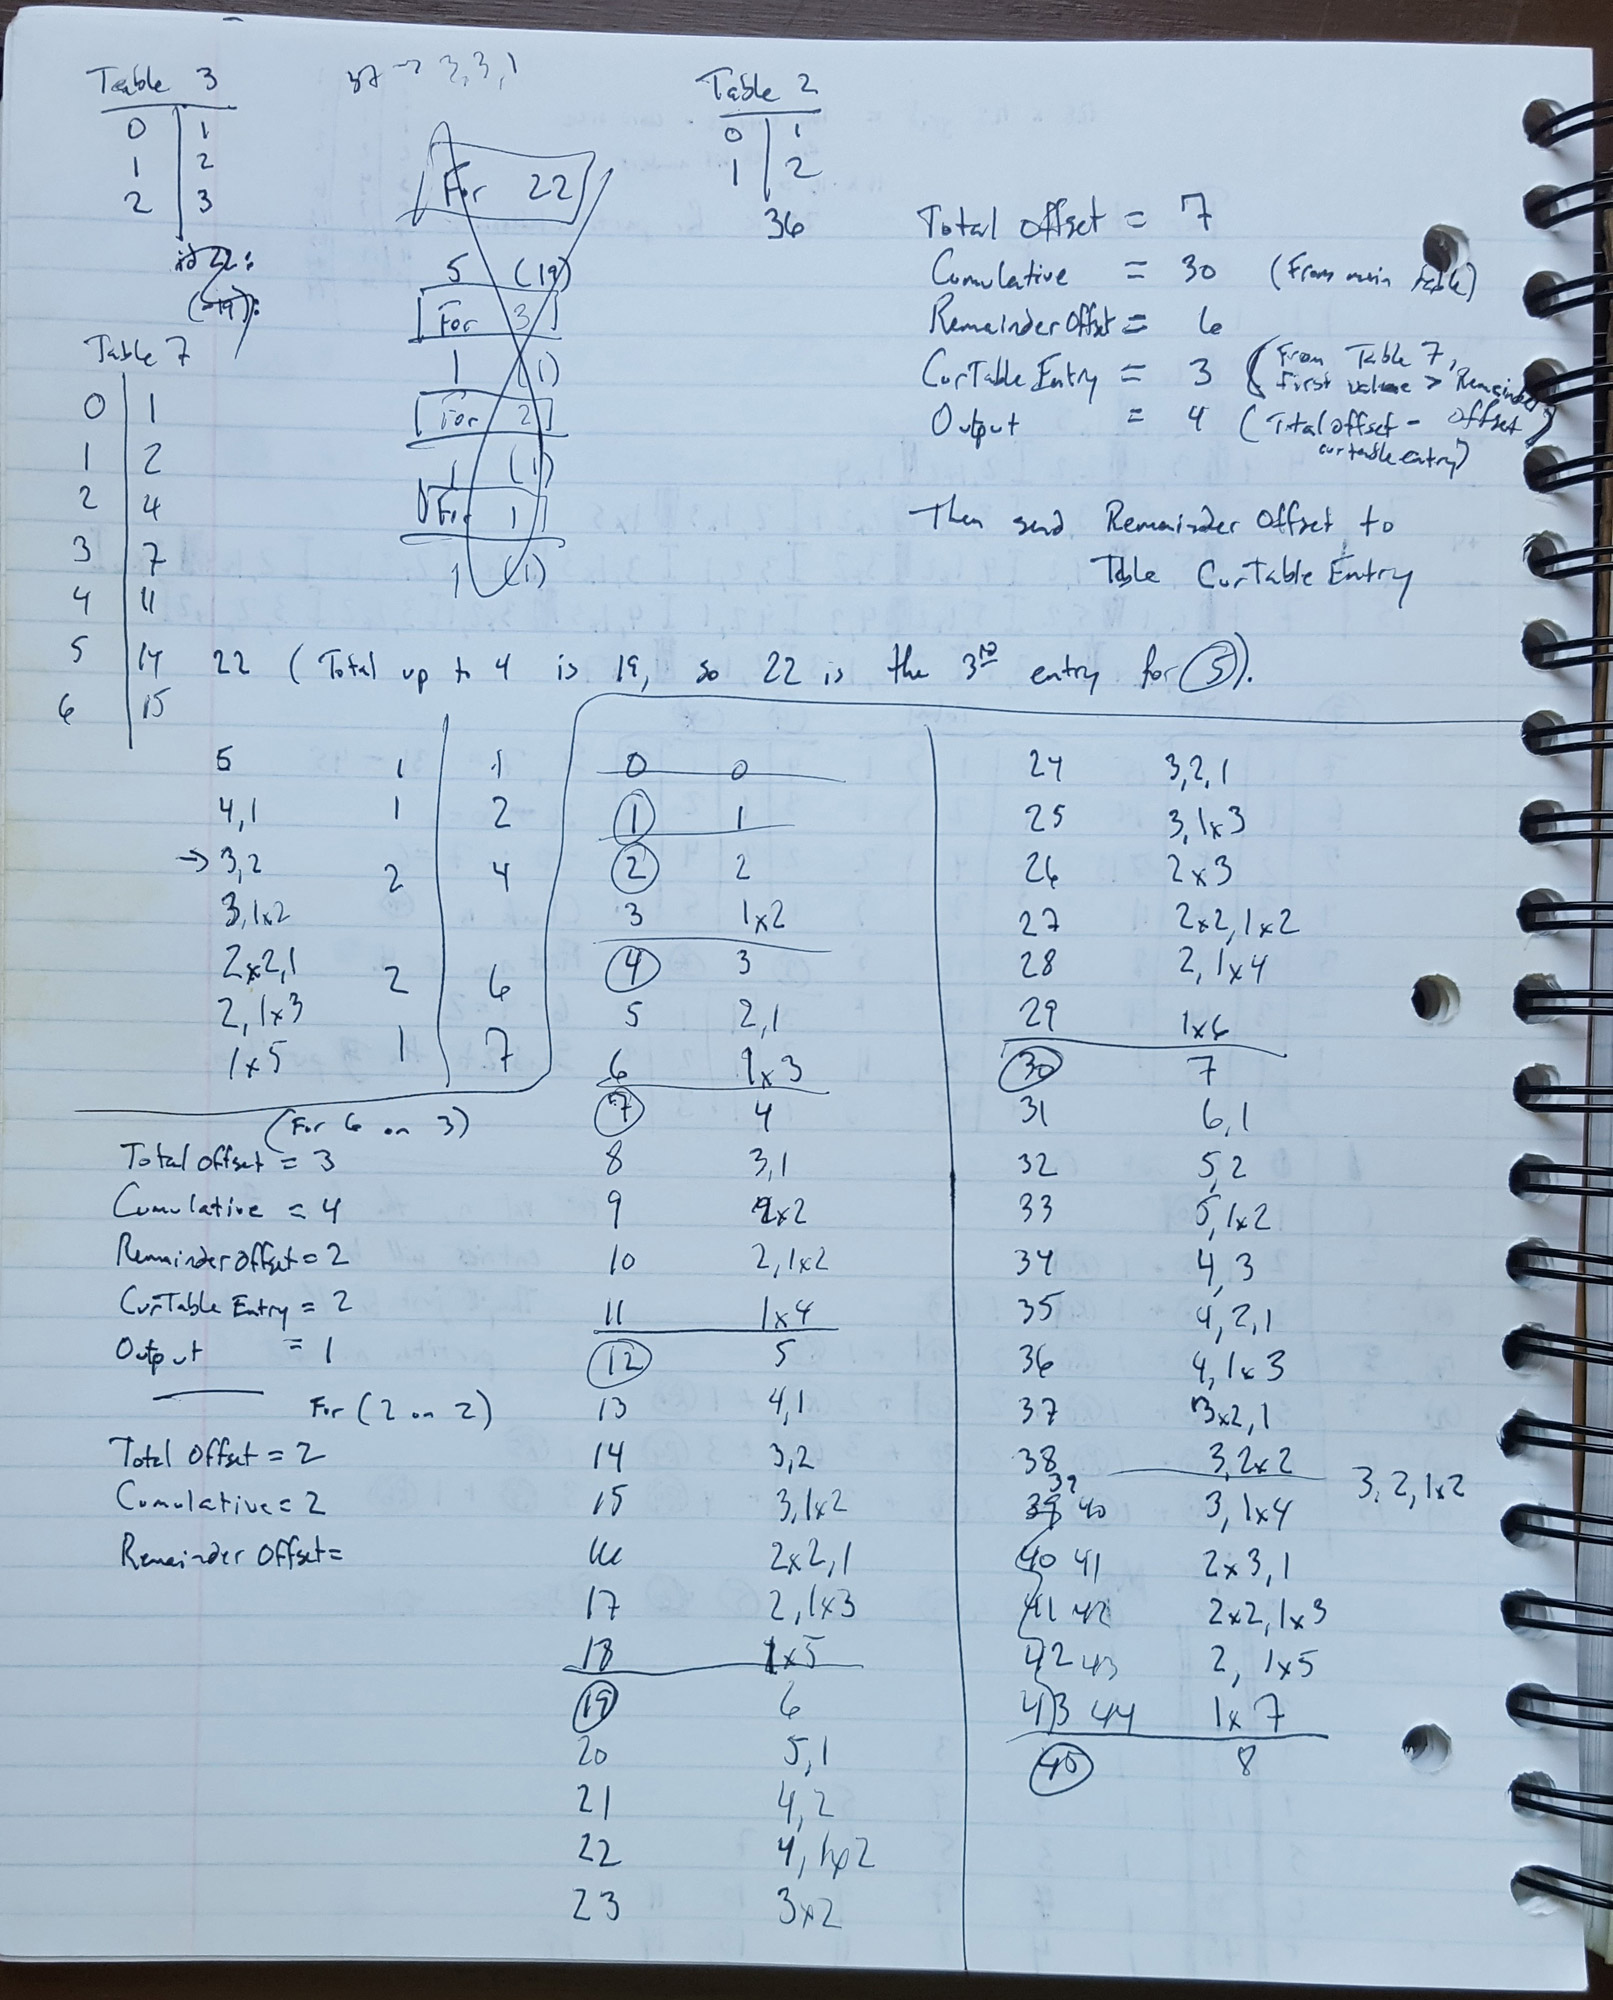 Table 3
0 1
1 2
2 3
37 → 3,3,1
Table 2
0 1
1 2
36
For 22
5 (19)
For 3
1 (1)
For 2
1 (1)
For 1
1 (1)
Total offset = 7
Cumulative = 30 (From main table)
Remainder Offset = 6
CurTable Entry = 3 (From Table 7, first value > Remainder)
Output = 4 (Total offset - offset curtable entry)
Then send Remainder Offset to
Table CurTable Entry
Table 7
0 1
1 2
2 4
3 7
4 11
5 14
6 15
22 (Total up to 4 is 19, so 22 is the 3rd entry for 5).
5 1 1
4,1 1 2
→ 3,2 2 4
3,1x2
2x2,1 2 6
2,1x3
1x5 1 7
(For 6 on 3)
Total offset = 3
Cumulative = 4
Remainder Offset = 2
CurTable Entry = 2
Output = 1
For (2 on 2)
Total Offset = 2
Cumulative = 2
Remainder Offset =
0 0
1 1
2 2
3 1x2
4 3
5 2,1
6 1x3
7 4
8 3,1
9 2x2
10 2,1x2
11 1x4
12 5
13 4,1
14 3,2
15 3,1x2
16 2x2,1
17 2,1x3
18 1x5
19 6
20 5,1
21 4,2
22 4,1x2
23 3x2
24 3,2,1
25 3,1x3
26 2x3
27 2x2,1x2
28 2,1x4
29 1x6
30 7
31 6,1
32 5,2
33 5,1x2
34 4,3
35 4,2,1
36 4,1x3
37 3x2,1
38 3,2x2
39 3,2,1x2
39 40 3,1x4
40 41 2x3,1
41 42 2x2,1x3
42 43 2, 1x5
43 44 1x7
45 8